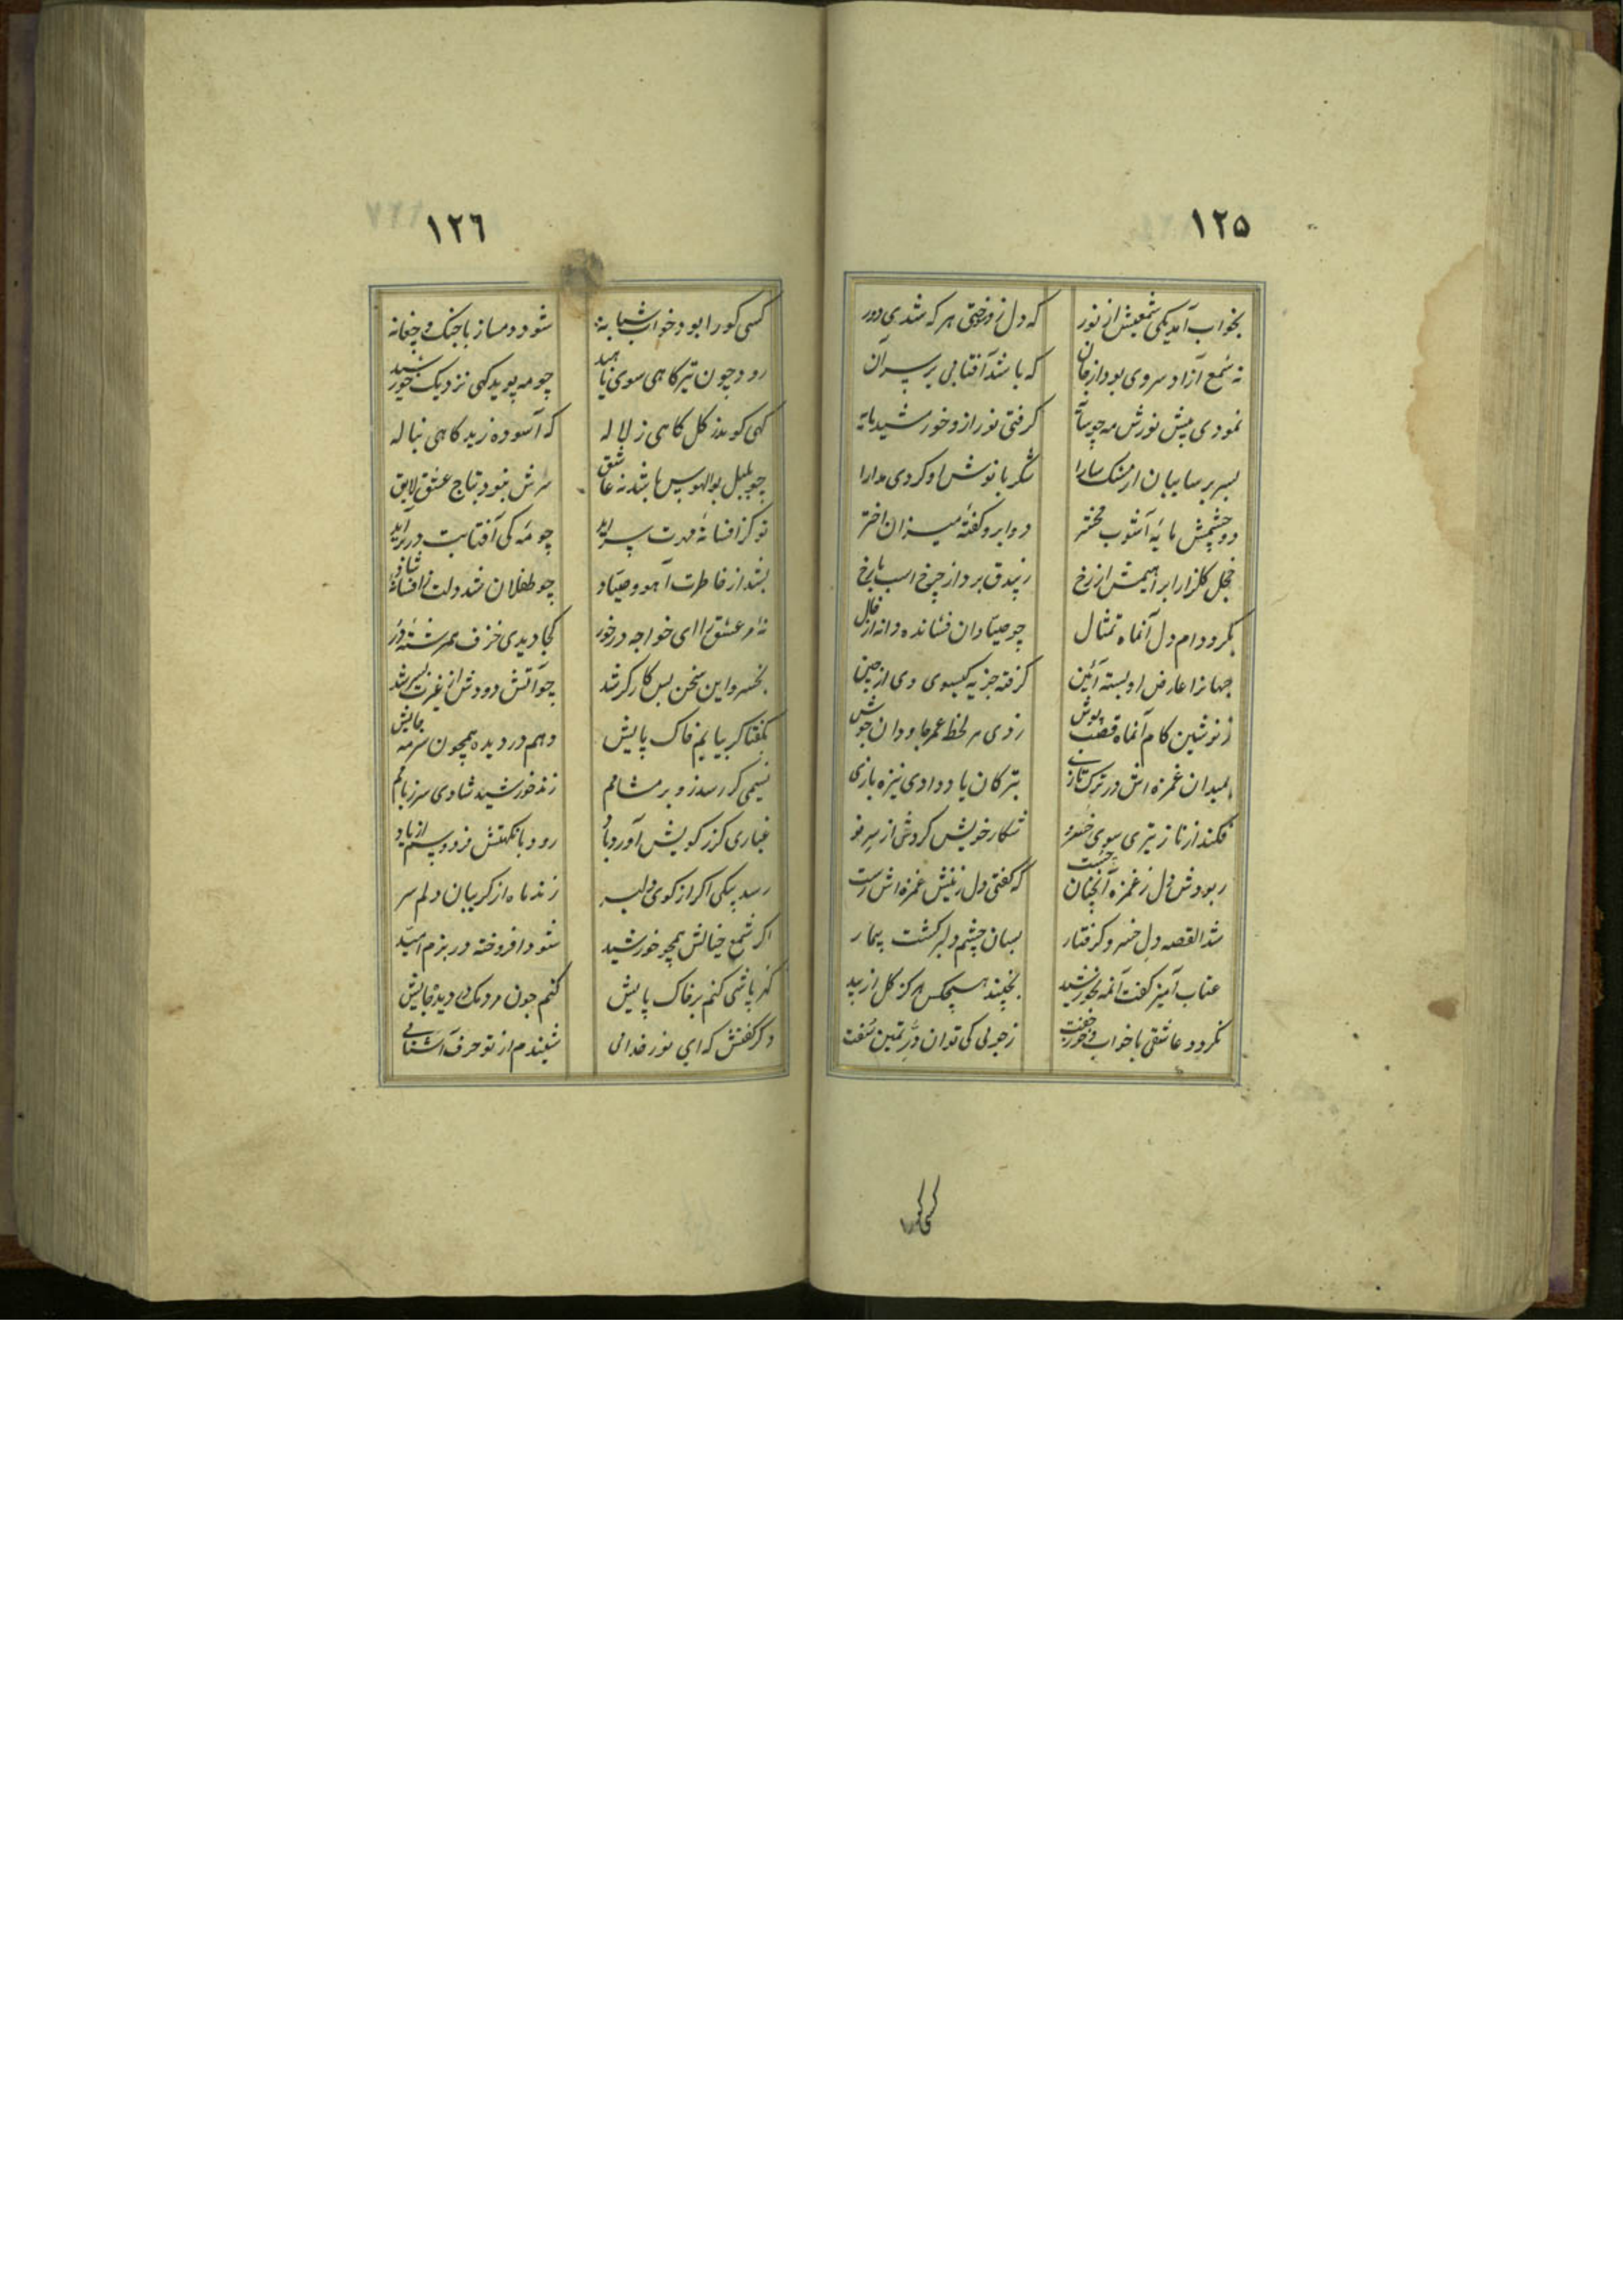 ۱۲۵
بخواب آمد یکی شمعیش از نور که دل زو سوختی هر که شدی دور
نه شمع آزاد سروی بود از جان که باشد آفتابی بر سر آن
نمودی پیش نورش مه چو سایه گرفتی نور ازو خورشید پایه
بسر بر سایبان از مشک سارا شکر با نوش او کردی مدارا
دو چشمش مایهٔ آشوب محشر دو ابرو کفهٔ میزان اختر
خجل گلزار ابراهیمش از رخ ز بیدق برد از چرخ اسب با رخ
بگرد دام دل آنماه تمثال چو صیادان فشانده دانه از خال
جهانرا عارض او بسته آئین گرفته جزیه گیسوی وی از چین
ز نوشین کام آنماه قصب پوش زدی هر لحظه عمر جاودان جوش
بمیدان غمزه اش در ترک تازی بترکان یاد دادی نیزه بازی
فکند از ناز تیری سوی خسرو شکار خویش کردش از سر نو
ربودش دل ز غمزه آنچنان چست که گفتی دل ز نیش غمزه اش رست
شد القصه دل خسرو گرفتار بسان چشم دلبر گشت بیمار
عتاب آمیز گفت آنمه بخورشید نچیند هیچکس هرگز گل از بید
نگردد عاشقی با خواب و خور جفت ز چوبی کی توان در ثمین سفت
کسی کورا
۱۲۶
کسی کورا بود خواب شبانه شود دمساز با چنگ و چغانه
رود چون تیر گاهی سوی ناهید چو مه پوید گهی نزدیک خورشید
گهی گوید ز گل گاهی ز لاله گه آسوده زید گاهی بناله
چو بلبل بوالهوس باشد نه عاشق سرش نبود بتاج عشق لایق
تو کز افسانهٔ مهرت سر آید چو مه کی آفتابت در بر آید
بشد از خاطرت آهو و صیاد چو طفلان شد دلت ز افسانهٔ شاد
نهٔ مر عشق را ای خواجه در خور کجا دیدی خزف همرشتهٔ در
بخسرو این سخن بس کارگر شد چو آتش دودش از غیرت بسر شد
بگفتا گر بیابم خاک پایش دهم در دیده همچون سرمه جایش
نسیمی گر رسد زو بر مشامم زند خورشید شادی سر ز بامم
غباری گر ز کویش آورد باد رود با نکهتش فردوسم از یاد
رسد پیکی اگر از کوی دلبر زند ماه از گریبان دلم سر
اگر شمع خیالش همچو خورشید شود افروخته در بزم امید
گهر پاشی کنم بر خاک پایش کنم چون مردمک در دیده جایش
دگر گفتش که ای نور خدائی شنیدم از تو حرف آشنائی